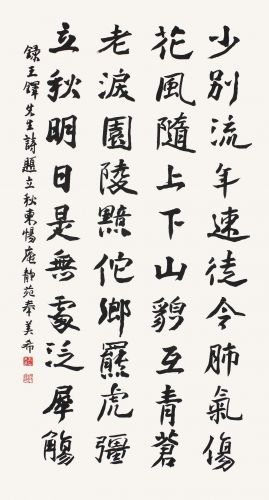 少別流年速徒令肺氣傷
花風隨上下山貌互青蒼
老淚園陵黯佗鄉羆虎彊
立秋明日是無處泛犀觴
錄王鐸先生詩題立秋東惕庵靜苑奉美希